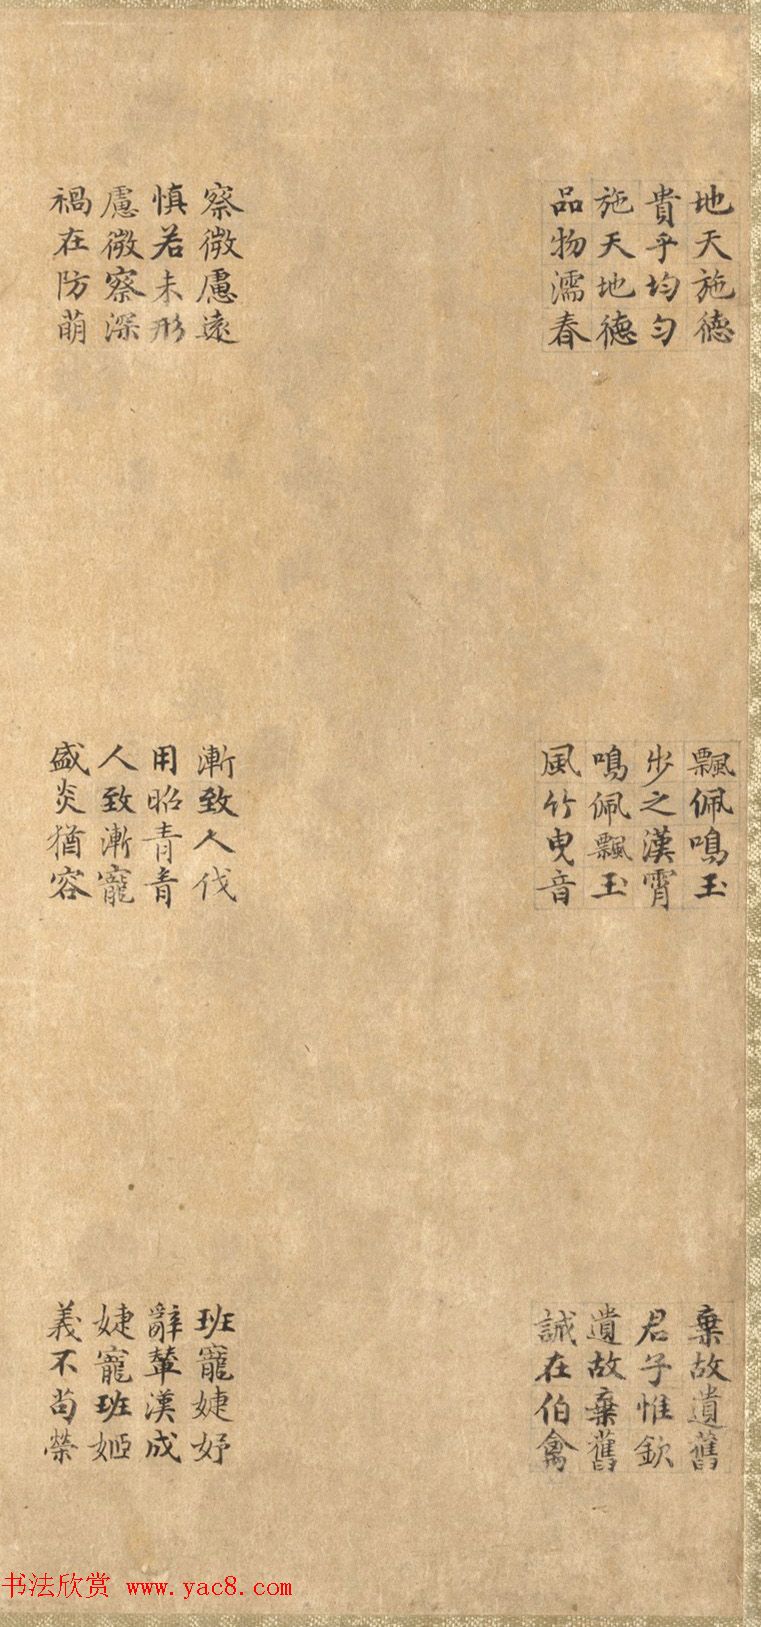 地天施德
貴乎均勻
施天地德
品物濡春
察微慮遠
慎若未形
慮微察深
禍在防萌
飄佩鳴玉
步之漢霄
鳴佩飄玉
風竹曳音
漸致人伐
用昭青青
人致漸寵
盛炎猶容
棄故遺舊
君子惟欽
遺故棄舊
誠在伯禽
班寵婕妤
辭輦漢成
婕寵班姬
義不苟榮
书法欣赏 www.yac8.com